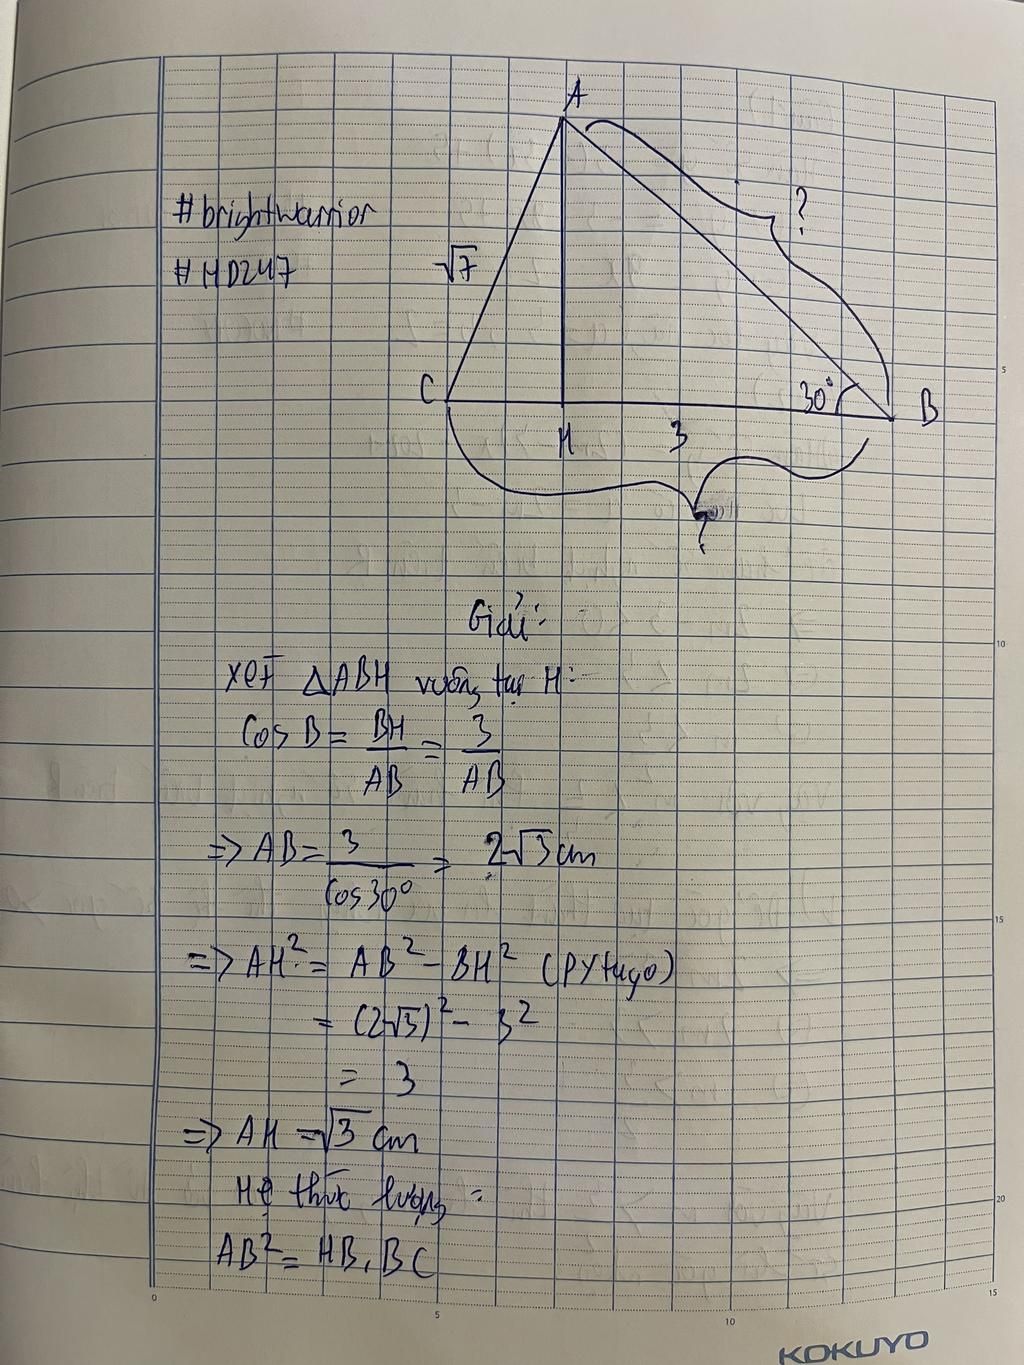 A
#brightwarrior
?
√7
#HD247
C
30°
B
H
3
?
Giải:
xét ΔABH vuông tại H:
Cos B = BH/AB = 3/AB
=> AB = 3/Cos30° = 2√3cm
=> AH² = AB² - BH² (PYtago)
= (2√3)² - 3²
= 3
=> AH = √3 cm
Hệ thức lượng:
AB² = HB.BC
5
10
15
20
0
5
10
15
KOKUYO